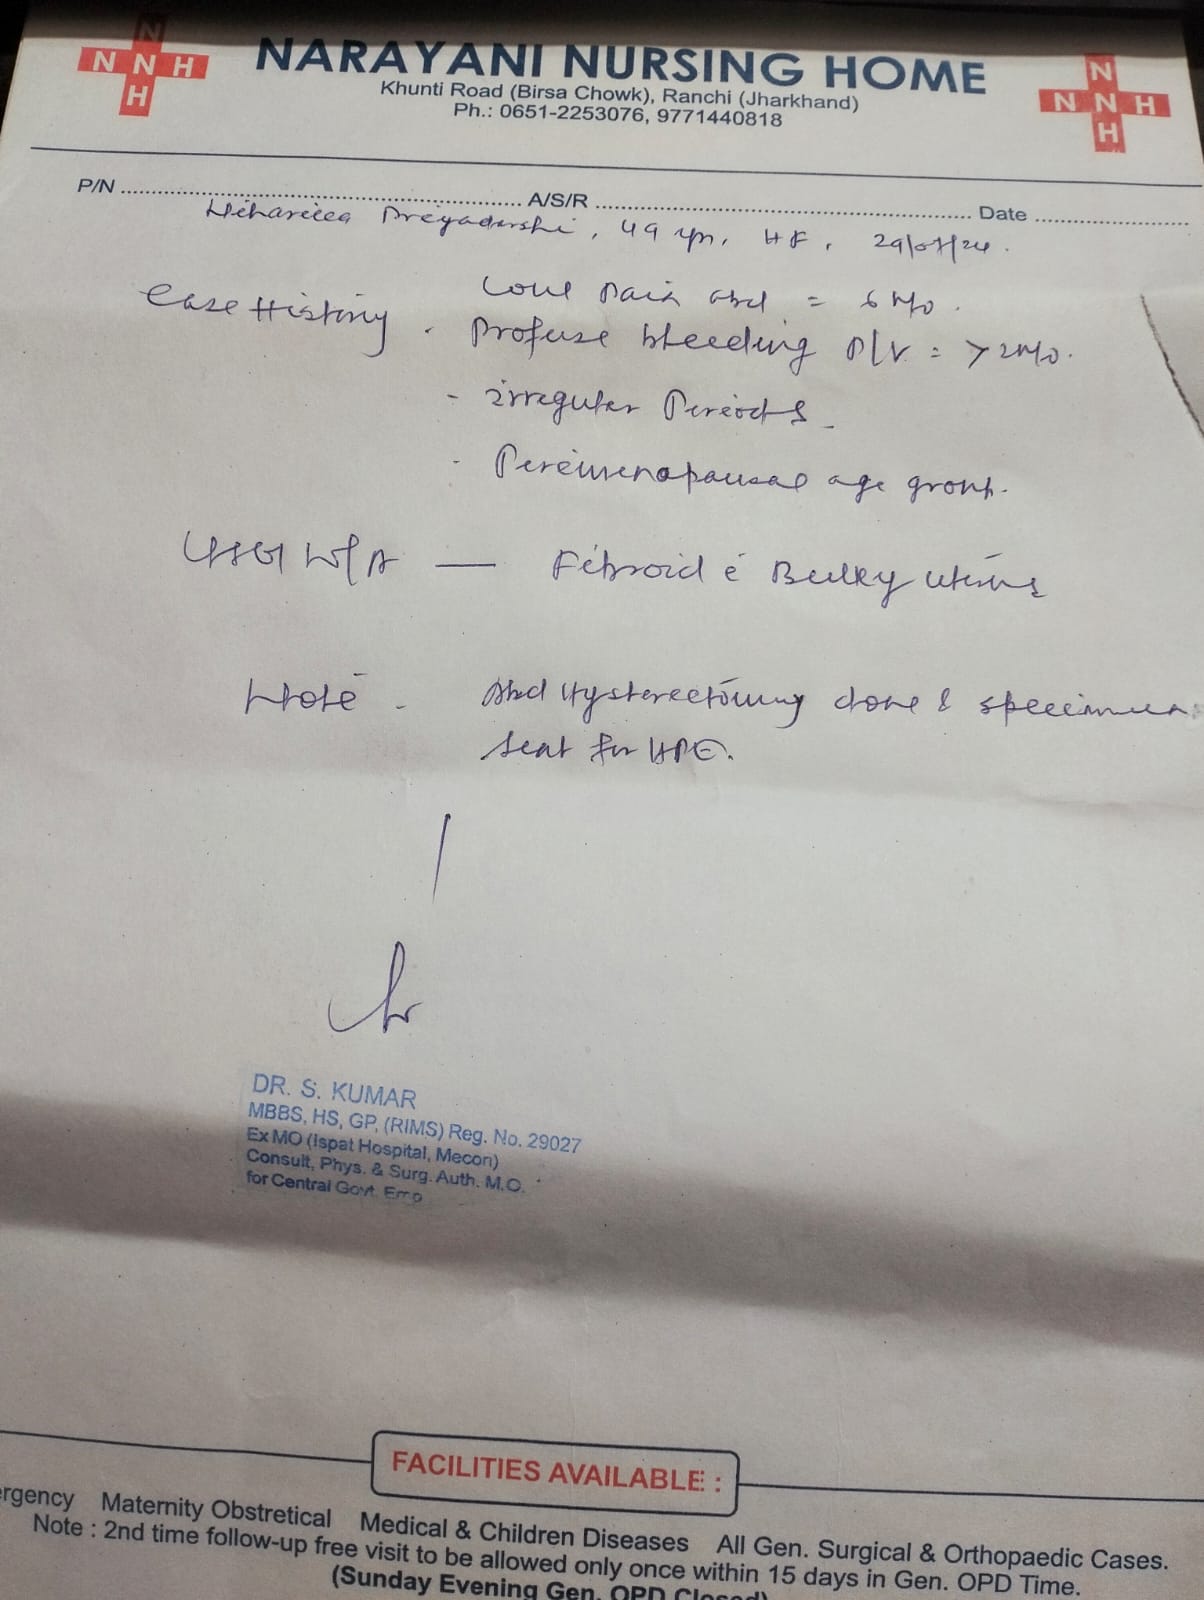 N
N N H
H
NARAYANI NURSING HOME
Khunti Road (Birsa Chowk), Ranchi (Jharkhand)
Ph.: 0651-2253076, 9771440818
N
N N H
H
P/N ........ A/S/R ........ Date ........
Priyadarshi, 49 yrs, HF, 29/07/24.
Case History. Low Pain abd = 6 M/o.
Profuse bleeding P/V = > 2M/o.
- irregular Periods
- Perimenopausal age group.
USG W/A — Fibroid c̄ Bulky uterus
Note - Abd Hysterectomy done & specimen
sent for HPE.
DR. S. KUMAR
MBBS, HS, GP, (RIMS) Reg. No. 29027
Ex MO (Ispat Hospital, Mecon)
Consult, Phys. & Surg. Auth. M.O.
for Central Govt. Emp
FACILITIES AVAILABLE :
ergency Maternity Obstretical Medical & Children Diseases All Gen. Surgical & Orthopaedic Cases.
Note : 2nd time follow-up free visit to be allowed only once within 15 days in Gen. OPD Time.
(Sunday Evening Gen. OPD Closed)